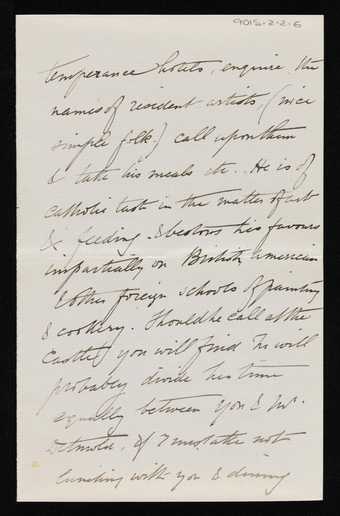 9015-2-2-6
temperance hotels, enquire the
names of resident artists, (nice
simple folk) call upon them
& take his meals etc. He is of
catholic taste in the matter of art
& feeding & bestows his favours
impartially on British, American
& other foreign schools of painting
& cookery. Should he call at the
Castle, you will find he will
probably divide his time
equally between you & Mr.
Detmold, if I mistake not
lunching with you & dining